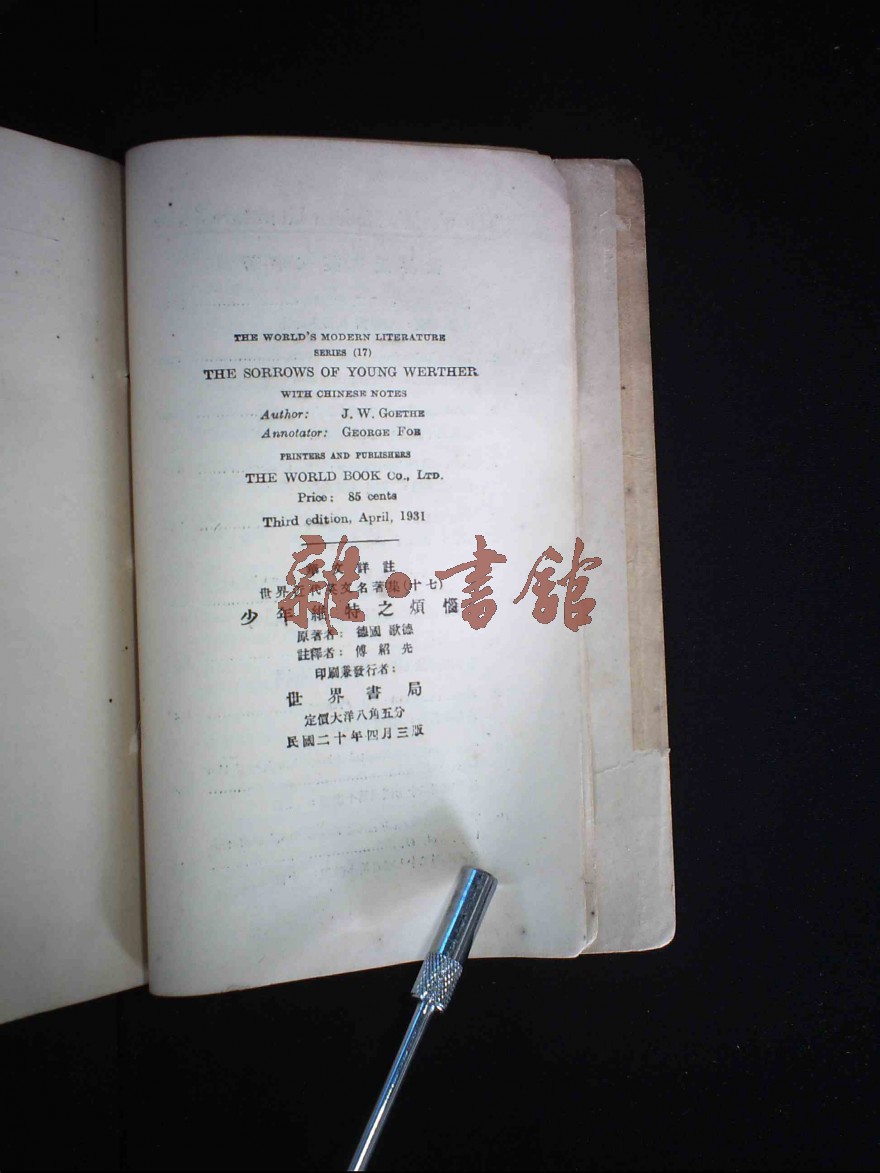 THE WORLD'S MODERN LITERATURE
SERIES (17)
THE SORROWS OF YOUNG WERTHER
WITH CHINESE NOTES
Author: J. W. GOETHE
Annotator: GEORGE FOE
PRINTERS AND PUBLISHERS
THE WORLD BOOK Co., LTD.
Price: 85 cents
Third edition, April, 1931
文詳註
世界近代英文名著集(十七)
少年維特之煩惱
原著者: 德國 歌德
註釋者: 傅紹光
印刷兼發行者:
世界書局
定價大洋八角五分
民國二十年四月三版
雜·書館